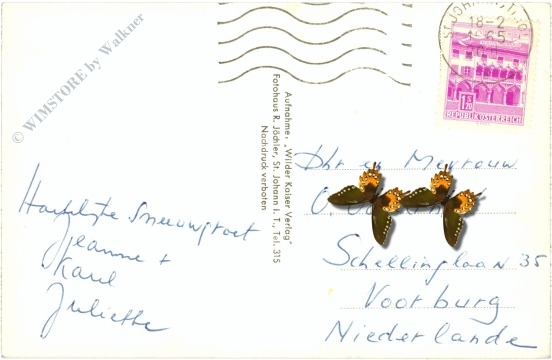 © WIMSTORE by Walkner
ST. JOHANN
18-2
1965
1.50
REPUBLIK ÖSTERREICH
Aufnahme, „Wilder Kaiser Verlag"
Fotohaus R. Jöchler, St. Johann i. T., Tel. 315
Nachdruck verboten
Hartelijke Sneeuwgroet
Jeanne +
Karel
Juliette
Dhr en Mevrouw
Schellinglaan 35
Voorburg
Niederlande